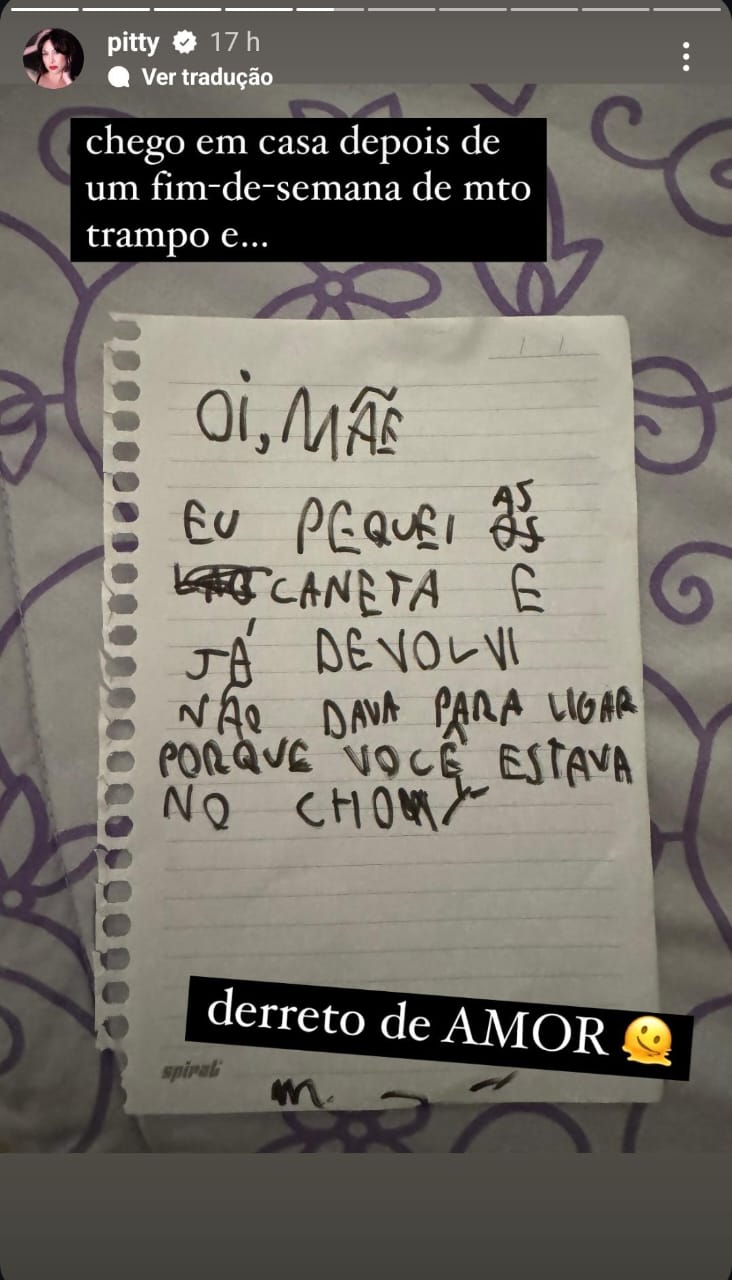 pitty 17 h
Ver tradução
chego em casa depois de
um fim-de-semana de mto
trampo e...
OI, MÃE
EU PEQUEI AS
CANETA E
JÁ DEVOLVI
NÃO DAVA PARA LIGAR
PORQUE VOCÊ ESTAVA
NO
derreto de AMOR 🫠
spiral